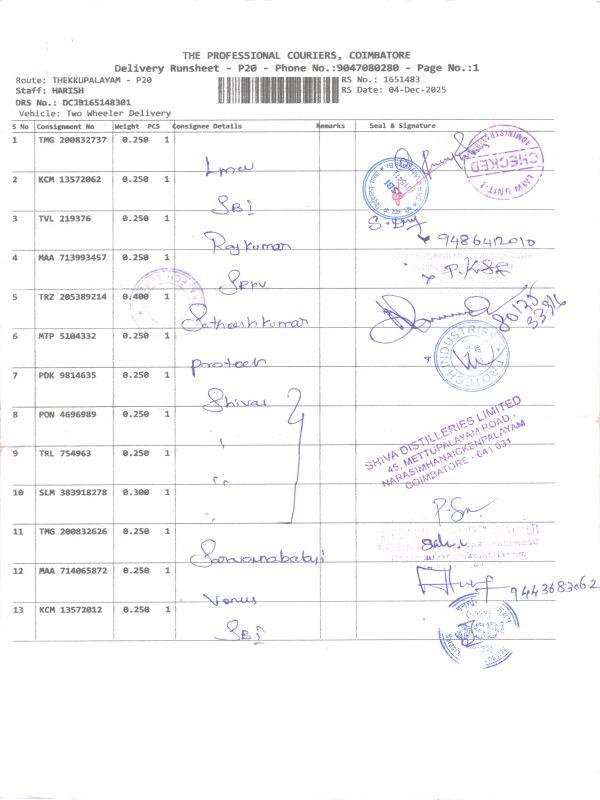 THE PROFESSIONAL COURIERS, COIMBATORE
Delivery Runsheet - P20 - Phone No.:9047080280 - Page No.:1
Route: THEKKUPALAYAM - P20
RS No.: 1651483
Staff: HARISH
RS Date: 04-Dec-2025
DRS No.: DCJB165148301
Vehicle: Two Wheeler Delivery
S No Consignment No Weight PCS Consignee Details Remarks Seal & Signature
1 TMG 200832737 0.250 1
CHECKED
LMW UNIT-1
2 KCM 13572062 0.250 1 SBI
SBI
3 TVL 219376 0.250 1 Rajkumar
9486412010
4 MAA 713993457 0.250 1
5 TRZ 205389214 0.400 1 Satheeshkumar
6 MTP 5104332 0.250 1 protech
PROTECH INDUSTRIES
7 PDK 9814635 0.250 1 Shivas
8 PON 4696989 0.250 1
SHIVA DISTILLERIES LIMITED
45, METTUPALAYAM ROAD,
NARASIMHANAICKENPALAYAM
COIMBATORE - 641 031
9 TRL 754963 0.250 1
10 SLM 383918278 0.300 1
11 TMG 200832626 0.250 1
12 MAA 714065872 0.250 1 Venus
9443683062
13 KCM 13572012 0.250 1 SBI
SBI